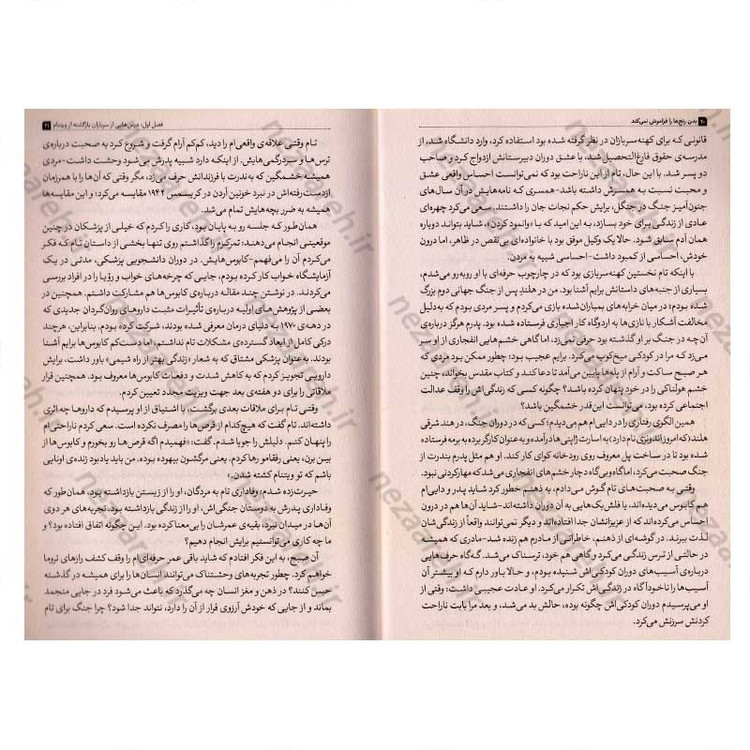 ۲۰ بدن رنج‌ها را فراموش نمی‌کند
قانونی که برای کهنه‌سربازان در نظر گرفته شده بود استفاده کرد، وارد دانشگاه شد، از
مدرسه‌ی حقوق فارغ‌التحصیل شد، با عشق دوران دبیرستانش ازدواج کرد و صاحب
دو پسر شد. با این حال، تام از این ناراحت بود که نمی‌توانست احساس واقعی عشق
و محبت نسبت به همسرش داشته باشد-همسری که نامه‌هایش در آن سال‌های
جنون‌آمیز جنگ در جنگل، برایش حکم نجات جان را داشتند. سعی می‌کرد چهره‌ای
عادی از زندگی برای خود بسازد، به این امید که با «وانمود کردن»، شاید بتواند دوباره
همان آدم سابق شود. حالا یک وکیل موفق بود با خانواده‌ای بی‌نقص در ظاهر، اما درون
خودش، احساسی از کمبود داشت-احساسی شبیه به مردن.
با اینکه تام نخستین کهنه‌سربازی بود که در چارچوب حرفه‌ای با او روبه‌رو می‌شدم،
بسیاری از جنبه‌های داستانش برایم آشنا بود. من در هلندِ پس از جنگ جهانی دوم بزرگ
شده بودم؛ در میان خرابه‌های بمباران‌شده بازی می‌کردم و پسر مردی بودم که به‌دلیل
مخالفت آشکار با نازی‌ها به اردوگاه کار اجباری فرستاده شده بود. پدرم هرگز درباره‌ی
آن‌چه در جنگ بر او گذشته بود حرفی نمی‌زد، اما گاهی خشم‌هایی انفجاری از او سر
می‌زد که مرا در کودکی میخ‌کوب می‌کرد. برایم عجیب بود: چطور ممکن بود مردی که
هر صبح ساکت و آرام از پله‌ها پایین می‌آمد تا دعا کند و کتاب مقدس بخواند، چنین
خشم هولناکی را در خود پنهان کرده باشد؟ چگونه کسی که زندگی‌اش را وقف عدالت
اجتماعی کرده بود، می‌توانست این‌قدر خشمگین باشد؟
همین الگوی رفتاری را در دایی‌ام هم می‌دیدم؛ کسی که در دوران جنگ، در هند شرقی
هلند (که امروز اندونزی نام دارد) به اسارت ژاپنی‌ها درآمده و به عنوان کارگر برده به برمه فرستاده
شده بود تا در ساخت پل معروف روی رودخانه‌ کوای کار کند. او هم مثل پدرم به‌ندرت از
جنگ صحبت می‌کرد، اما گاه و بی‌گاه دچار خشم‌های انفجاری می‌شد که مهارکردنی نبود.
وقتی به صحبت‌های تام گوش می‌دادم، به ذهنم خطور کرد شاید پدر و دایی‌ام
هم کابوس می‌دیده‌اند، یا فلش‌بک‌هایی به آن دوران داشته‌اند-شاید آن‌ها هم در درون
احساس می‌کرده‌اند که از عزیزانشان جدا افتاده‌اند و دیگر نمی‌توانند واقعاً از زندگی‌شان
لذت ببرند. در گوشه‌ای از ذهنم، خاطراتی از مادرم هم زنده شد-مادری که همیشه
در حالتی از ترس زندگی می‌کرد و گاهی هم خود، ترسناک می‌شد. گه‌گاه حرف‌هایی
درباره‌ی آسیب‌های دوران کودکی‌اش شنیده بودم، و حالا باور دارم که او بیشتر آن
آسیب‌ها را ناخودآگاه در زندگی‌اش تکرار می‌کرد. او عادت عجیبی داشت؛ وقتی از
او می‌پرسیدم دوران کودکی‌اش چگونه بوده، حالش بد می‌شد، و بعد مرا بابت ناراحت
کردنش سرزنش می‌کرد.
فصل اول: درس‌هایی از سربازان بازگشته از ویتنام ۲۱
تام وقتی علاقه‌ی واقعی‌ام را دید، کم‌کم آرام گرفت و شروع کرد به صحبت درباره‌ی
ترس‌ها و سردرگمی‌هایش. از اینکه دارد شبیه پدرش می‌شود وحشت داشت-مردی
همیشه خشمگین که به‌ندرت با فرزندانش حرف می‌زد، مگر وقتی که آن‌ها را با هم‌رزمان
ازدست‌رفته‌اش در نبرد خونین آردن در کریسمس ۱۹۴۴ مقایسه می‌کرد؛ و این مقایسه‌ها
همیشه به ضرر بچه‌هایش تمام می‌شد.
همان‌طور که جلسه رو به پایان بود، کاری را کردم که خیلی از پزشکان در چنین
موقعیتی انجام می‌دهند: تمرکزم را گذاشتم روی تنها بخشی از داستان تام که فکر
می‌کردم آن را می‌فهمم-کابوس‌هایش. در دوران دانشجویی پزشکی، مدتی در یک
آزمایشگاه خواب کار کرده بودم، جایی که چرخه‌های خواب و رؤیا را در افراد بررسی
می‌کردند. در نوشتن چند مقاله درباره‌ی کابوس‌ها هم مشارکت داشتم. همچنین در
بعضی از پژوهش‌های اولیه درباره‌ی تأثیرات مثبت داروهای روان‌گردان جدیدی که
در دهه‌ی ۱۹۷۰ به دنیای درمان معرفی شده بودند، شرکت کرده بودم. بنابراین، هرچند
درکی کامل از ابعاد گسترده‌ی مشکلات تام نداشتم، اما دست‌کم کابوس‌ها برایم آشنا
بودند. به‌عنوان پزشکی مشتاق که به شعار «زندگی بهتر از راه شیمی» باور داشت، برایش
دارویی تجویز کردم که به کاهش شدت و دفعات کابوس‌ها معروف بود. همچنین قرار
ملاقاتی را برای دو هفته‌ی بعد جهت ویزیت مجدد تعیین کردم.
وقتی تام برای ملاقات بعدی برگشت، با اشتیاق از او پرسیدم که داروها چه اثری
داشته‌اند. تام گفت که هیچ‌کدام از قرص‌ها را مصرف نکرده است. سعی کردم ناراحتی‌ام
را پنهان کنم. دلیلش را جویا شدم. گفت: «فهمیدم اگه قرص‌ها رو بخورم و کابوس‌ها از
بین برن، یعنی رفقامو رها کردم. یعنی مرگشون بیهوده بوده. من باید یادبود زنده‌ی اونایی
باشم که تو ویتنام کشته شدن.»
حیرت‌زده شدم: وفاداری تام به مردگان، او را از زیستن بازداشته بود، همان‌طور که
وفاداری پدرش به دوستان جنگی‌اش، او را از زندگی بازداشته بود. تجربه‌های هر دوی
آن‌ها در میدان نبرد، بقیه‌ی عمرشان را بی‌معنا کرده بود. این چگونه اتفاق افتاده بود؟ و
ما چه کاری می‌توانستیم برایش انجام دهیم؟
آن صبح، به این فکر افتادم که شاید باقی عمر حرفه‌ای‌ام را وقف کشف رازهای تروما
خواهم کرد. چطور تجربه‌های وحشتناک می‌توانند انسان‌ها را برای همیشه در گذشته
حبس کنند؟ در ذهن و مغز انسان چه می‌گذرد که باعث می‌شود فرد در جایی منجمد
بماند و از جایی که خودش آرزوی فرار از آن را دارد، نتواند جدا شود؟ چرا جنگ برای تام
nezaafeh.ir